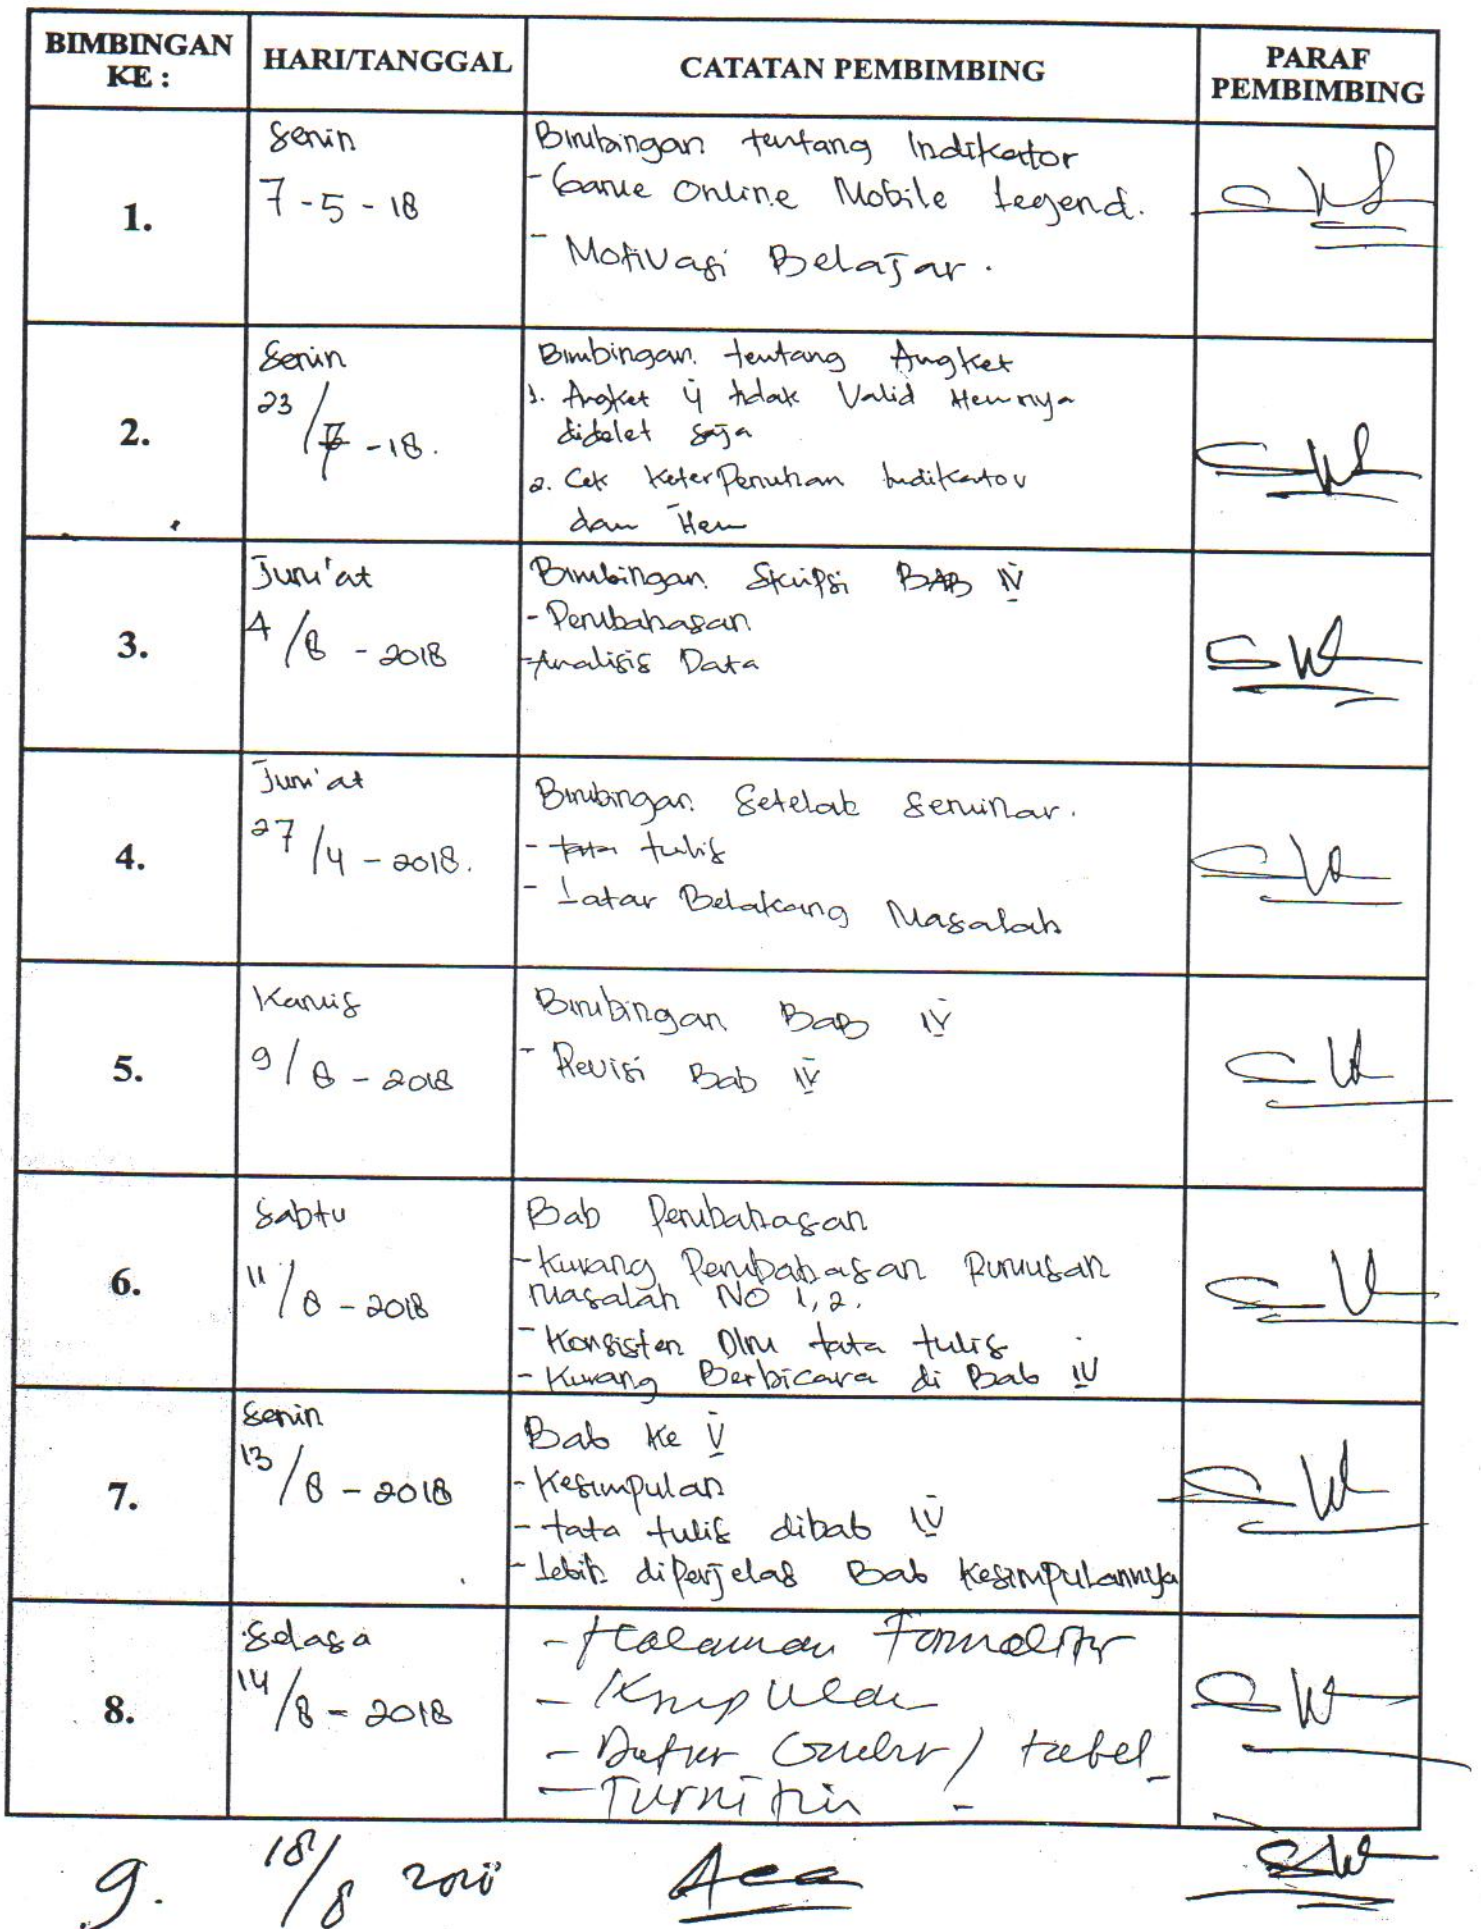 BIMBINGAN KE :
HARI/TANGGAL
CATATAN PEMBIMBING
PARAF PEMBIMBING
1.
Senin
7 - 5 - 18
Bimbingan tentang Indikator
- Game Online Mobile Legend.
- Motivasi Belajar.
2.
Senin
23/7 - 18.
Bimbingan tentang Angket
1. Angket yg tidak Valid itemnya
didelet saja
2. Cek KeterPenuhan Indikator
dan Item
3.
Jum'at
4/8 - 2018
Bimbingan Skripsi BAB IV
- Pembahasan
- Analisis Data
4.
Jum'at
27/4 - 2018.
Bimbingan Setelah Seminar.
- tata tulis
- Latar Belakang Masalah
5.
Kamis
9/8 - 2018
Bimbingan BAB IV
- Revisi Bab IV
6.
Sabtu
11/8 - 2018
Bab Pembahasan
- Kurang Pembahasan Rumusan
Masalah NO 1,2.
- Konsisten Dlm tata tulis
- Kurang Berbicara di Bab IV
7.
Senin
13/8 - 2018
Bab Ke V
- Kesimpulan
- tata tulis dibab IV
- Lebih diPerjelas Bab Kesimpulannya
8.
Selasa
14/8 - 2018
- Halaman Formalitas
-
- Daftar Gambar / tabel
- Turnitin
9.
18/8 2018
Acc